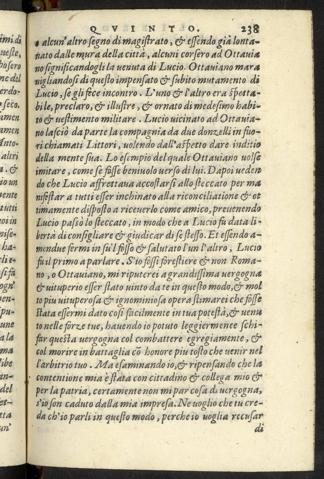 QVINTO. 238
o alcun'altro segno di magistrato, & essendo già lonta-
nato dalle mura della città, alcuni corsero ad Ottauia
no significandogli la uenuta di Lucio. Ottauiano mara
uigliandosi di questo impensato & subito mutamento di
Lucio, se gli fece incontro. L'uno & l'altro era spetta-
bile, preclaro, & illustre, & ornato di medesimo habi
to & uestimento militare. Lucio uicinato ad Ottauia-
no lasciò da parte la compagnia da due donzelli in fuo-
ri chiamati Littori, uolendo dall'aspetto dare inditio
della mente sua. Lo esempio del quale Ottauiano uolse
imitare, come se fosse beniuolo uerso di lui. Dapoi ueden
do che Lucio affrettaua accostarsi allo steccato per ma
nifestar a tutti esser inchinato alla riconciliatione & ot
timamente disposto a riceuerlo come amico, preuenendo
Lucio passò lo steccato, in modo che a Lucio fu data li-
bertà di consigliare & giudicar di se stesso. Et essendo a-
mendue fermi in su'l fosso & salutato l'un l'altro, Lucio
fu il primo a parlare. S'io fossi forestiere & non Roma-
no, o Ottauiano, mi riputerei a grandissima uergogna
& uituperio esser stato uinto da te in questo modo, & mol
to piu uituperosa & ignominiosa opera stimarei che fosse
stata essermi dato cosi facilmente in tua potestà, & uenu
to nelle forze tue, hauendo io potuto leggiermente schi-
far questa uergogna col combattere egregiamente, &
col morire in battaglia cō honore piu tosto che uenir nel
l'arbitrio tuo. Ma esaminando io, & ripensando che la
contentione mia è stata con cittadino & collega mio &
per la patria, certamente non mi par cosa di uergogna,
s'io son caduto dalla mia impresa. Ne uoglio che tu cre-
da ch'io parli in questo modo, perche io uoglia recusar
di